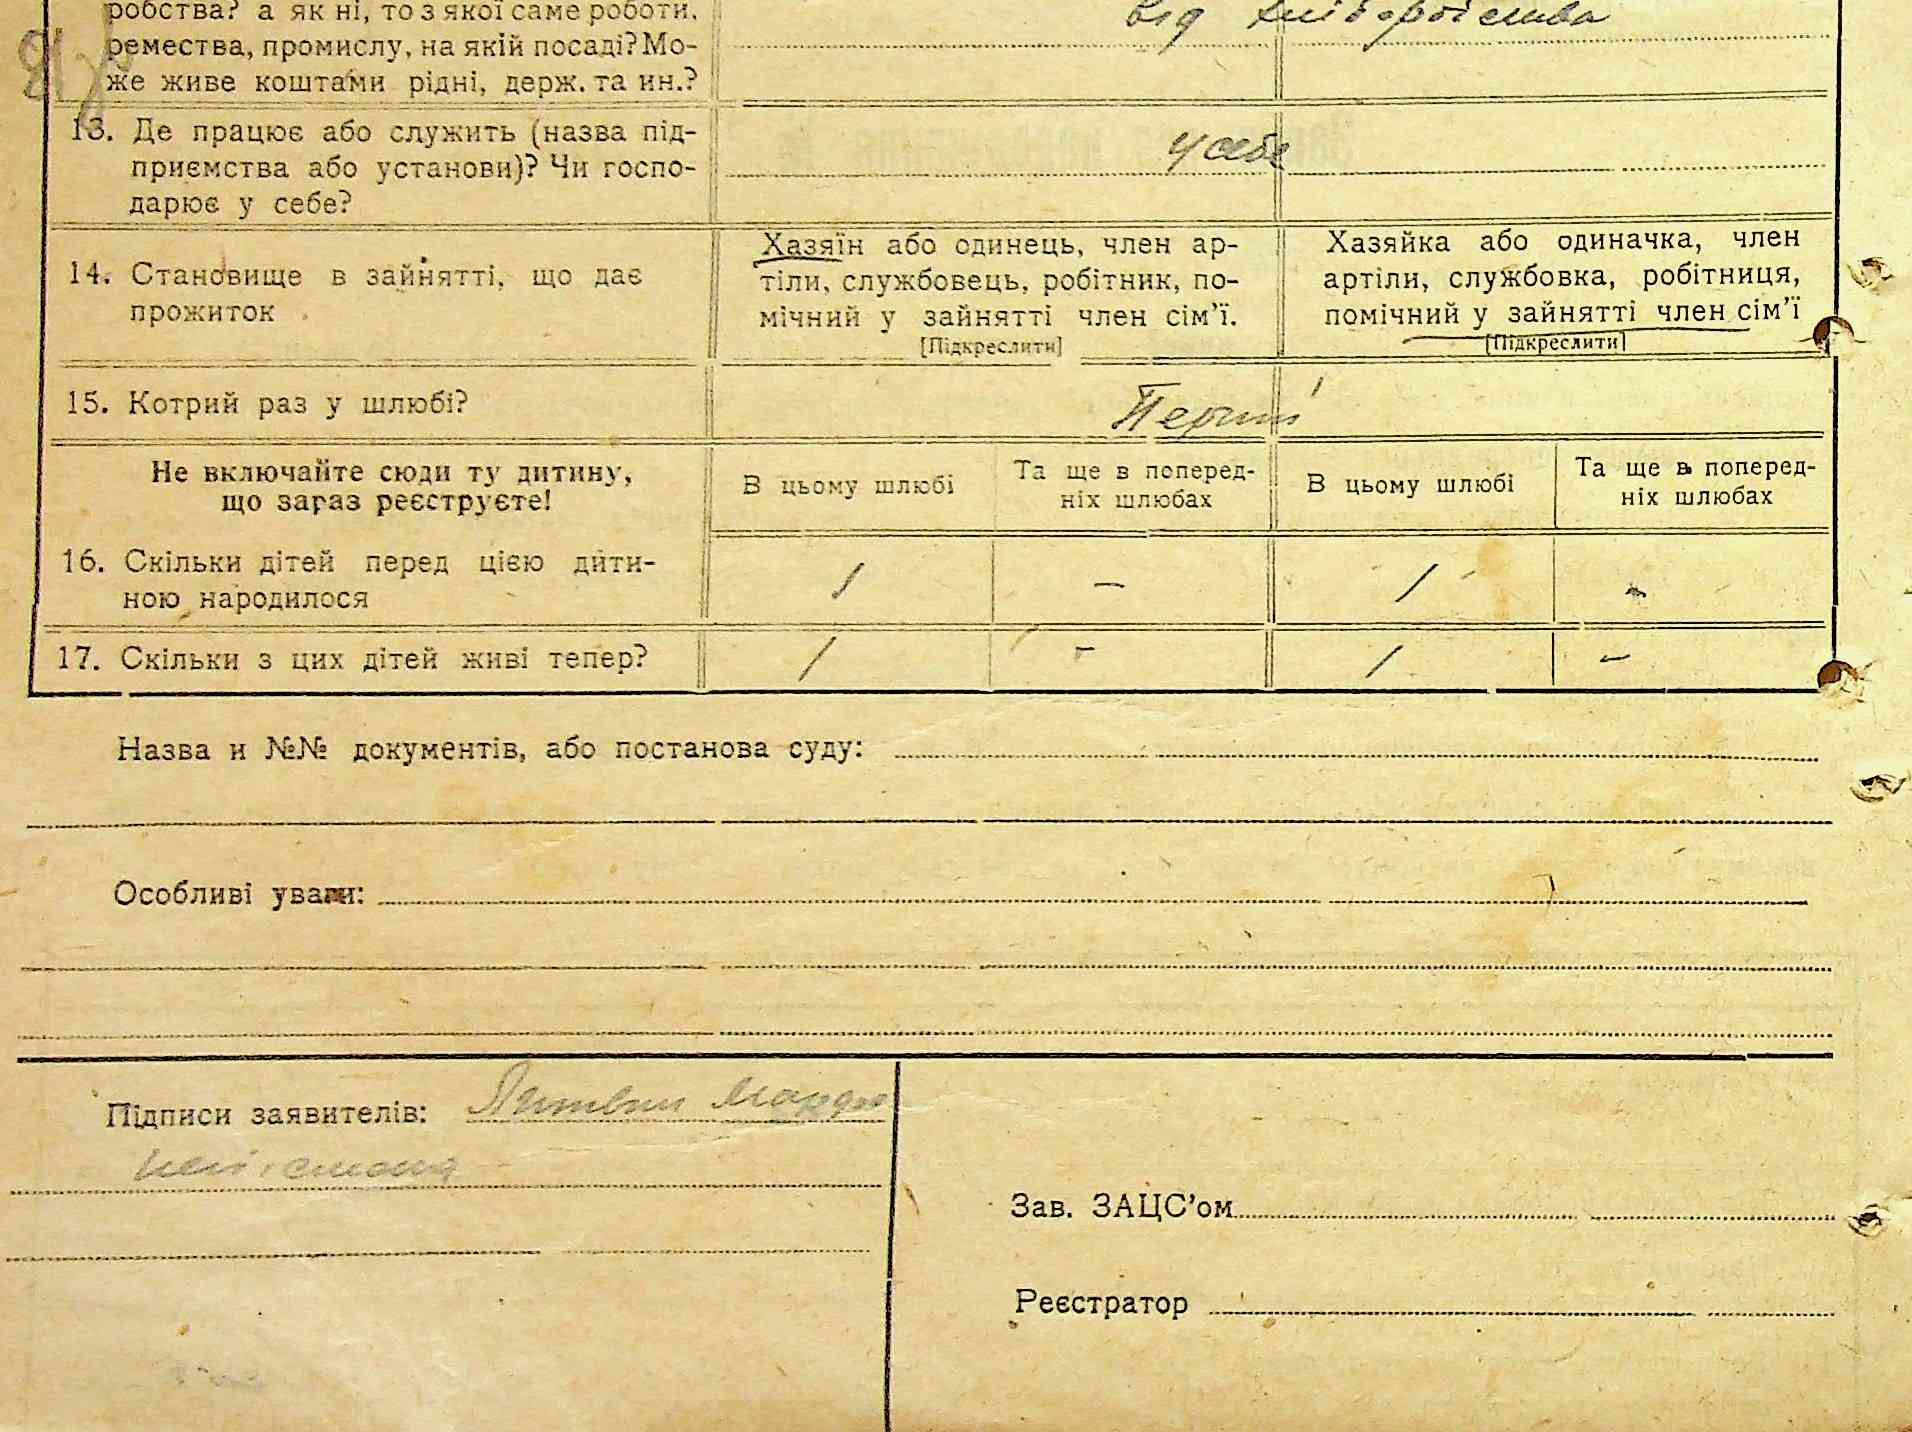 робства? а як ні, то з якої саме роботи,
ремества, промислу, на якій посаді? Мо-
же живе коштами рідні, держ. та ин.?
від хліборобства
13. Де працює або служить (назва під-
приємства або установи)? Чи госпо-
дарює у себе?
у себе
14. Становище в зайнятті, що дає
прожиток
Хазяїн або одинець, член ар-
тіли, службовець, робітник, по-
мічний у зайнятті член сім'ї.
[Підкреслити]
Хазяйка або одиначка, член
артіли, службовка, робітниця,
помічний у зайнятті член сім'ї
[Підкреслити]
15. Котрий раз у шлюбі?
Перший
Не включайте сюди ту дитину,
що зараз реєструєте!
В цьому шлюбі
Та ще в поперед-
ніх шлюбах
В цьому шлюбі
Та ще в поперед-
ніх шлюбах
16. Скільки дітей перед цією дити-
ною народилося
1 - 1 -
17. Скільки з цих дітей живі тепер?
1 - 1 -
Назва и №№ документів, або постанова суду:
Особливі уваги:
Підписи заявителів: Литвин
Зав. ЗАЦС'ом
Реєстратор